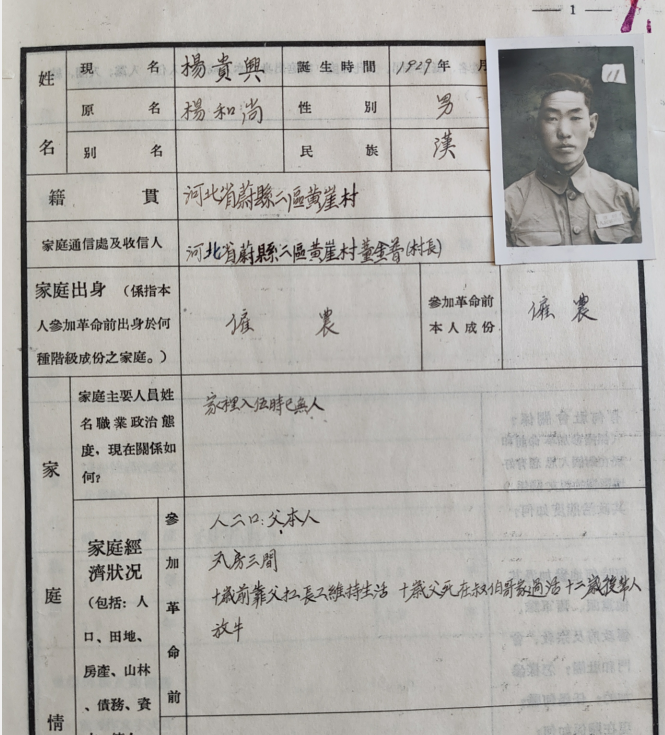 — 1 —
姓名
現名 楊貴興 誕生時間 1929年 月
原名 楊和尚 性別 男
別名 民族 漢
籍貫 河北省蔚縣二區黄崖村
家庭通信處及收信人 河北省蔚縣二區黄崖村董金 (村長)
家庭出身（係指本
人參加革命前出身於何
種階級成份之家庭。）
僱農
參加革命前
本人成份
僱農
家庭情
家庭主要人員姓
名職業政治態
度，現在關係如
何？
家裡入伍時已無人
家庭經
濟狀況
（包括：人
口、田地、
房產、山林
、債務、資
參加革命前
人二口：父本人
瓦房三間
十歲前靠父扛長工維持生活 十歲父死在叔伯哥家過活 十二歲後 人
放牛
11